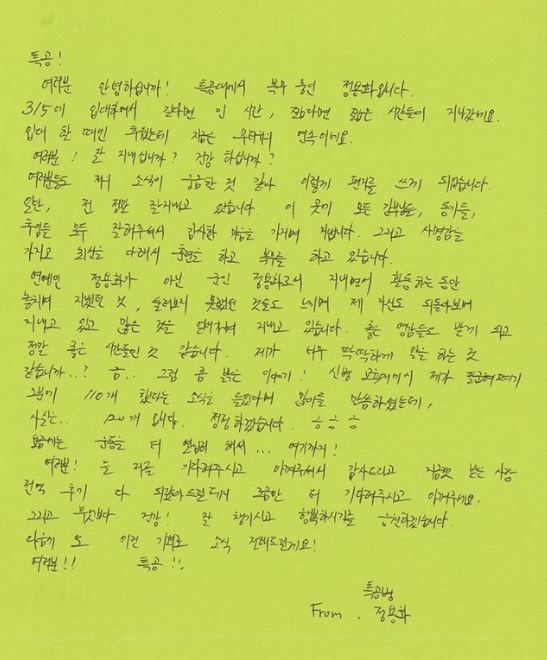 특공!
여러분 안녕하십니까! 특공대에서 복무 중인 정용화입니다.
3/5에 입대해서 길다면 긴 시간, 짧다면 짧은 시간들이 지나갔네요.
입대 한 때엔 추웠는데 지금은 무더위의 연속이네요.
여러분! 잘 지내십니까? 건강 하십니까?
여러분들도 저의 소식이 궁금한 것 같아 이렇게 편지를 쓰게 되었습니다.
일단, 전 정말 잘지내고 있습니다. 이 곳의 모든 간부님들, 동기들,
후임들 모두 잘해주셔서 감사한 마음을 가지며 지냅니다. 그리고 사명감을
가지고 최선을 다해서 훈련을 하고 복무를 하고 있습니다.
연예인 정용화가 아닌 군인 정용화로서 지내면서 활동하는 동안
놓치며 지냈던 것, 둘러보지 못했던 것들도 느끼며 제 자신도 되돌아보며
지내고 있고 많은 것을 되새기며 지내고 있습니다. 좋은 영감들도 받게 되고
정말 좋은 시간들인 것 같습니다. 제가 너무 딱딱하게 말을 하는 것
같습니까..? 음.. 그럼 좀 밝은 이야기! 신병 교육대에서 제가 팔굽혀펴기
2분에 110개 했다는 소식을 들으셔서 많이들 말씀하셨는데,
사실은.. 120개 입니다. 정정하겠습니다. ㅎㅎㅎ
요즘에는 운동을 더 열심히 해서... 여기까지!
여러분! 늘 저를 기다려주시고 아껴주셔서 감사드리고 지금껏 받은 사랑
전역 후에 다 되돌려드릴테니 조금만 더 기다려주시고 아껴주세요.
그리고 무엇보다 건강! 잘 챙기시고 행복하시기를 응원하겠습니다.
다음에 또 이런 기회로 소식 전해드릴게요!
여러분!! 특공!!
특공병
From. 정용화